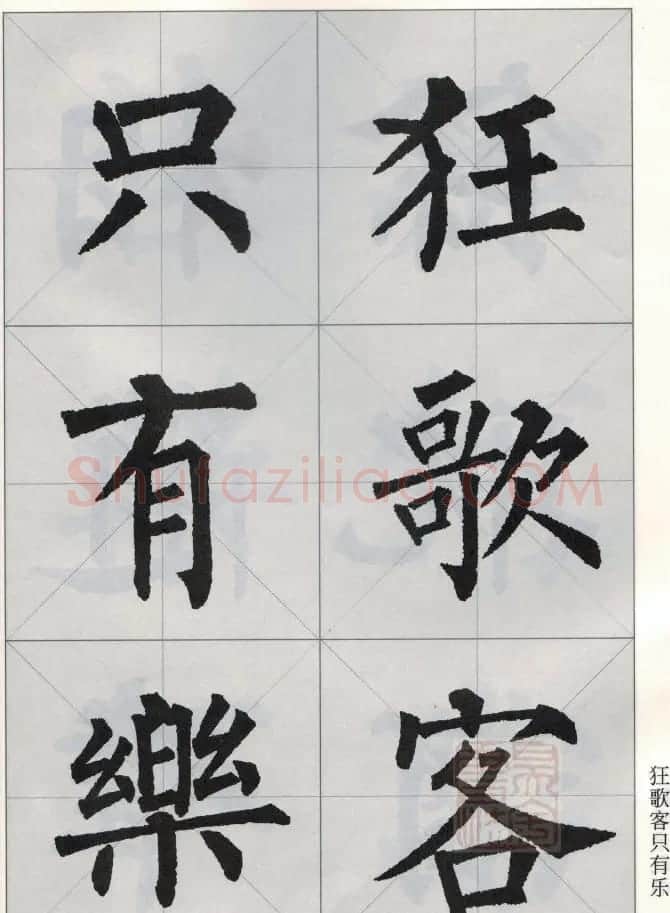 狂歌客
只有樂
狂歌客只有乐
Shufaziliao.COM